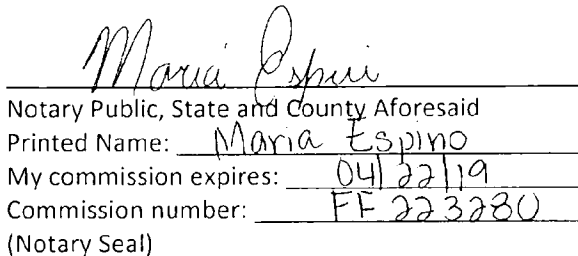 Maria Espino
Notary Public, State and County Aforesaid
Printed Name: Maria Espino
My commission expires: 04/22/19
Commission number: FF 223280
(Notary Seal)